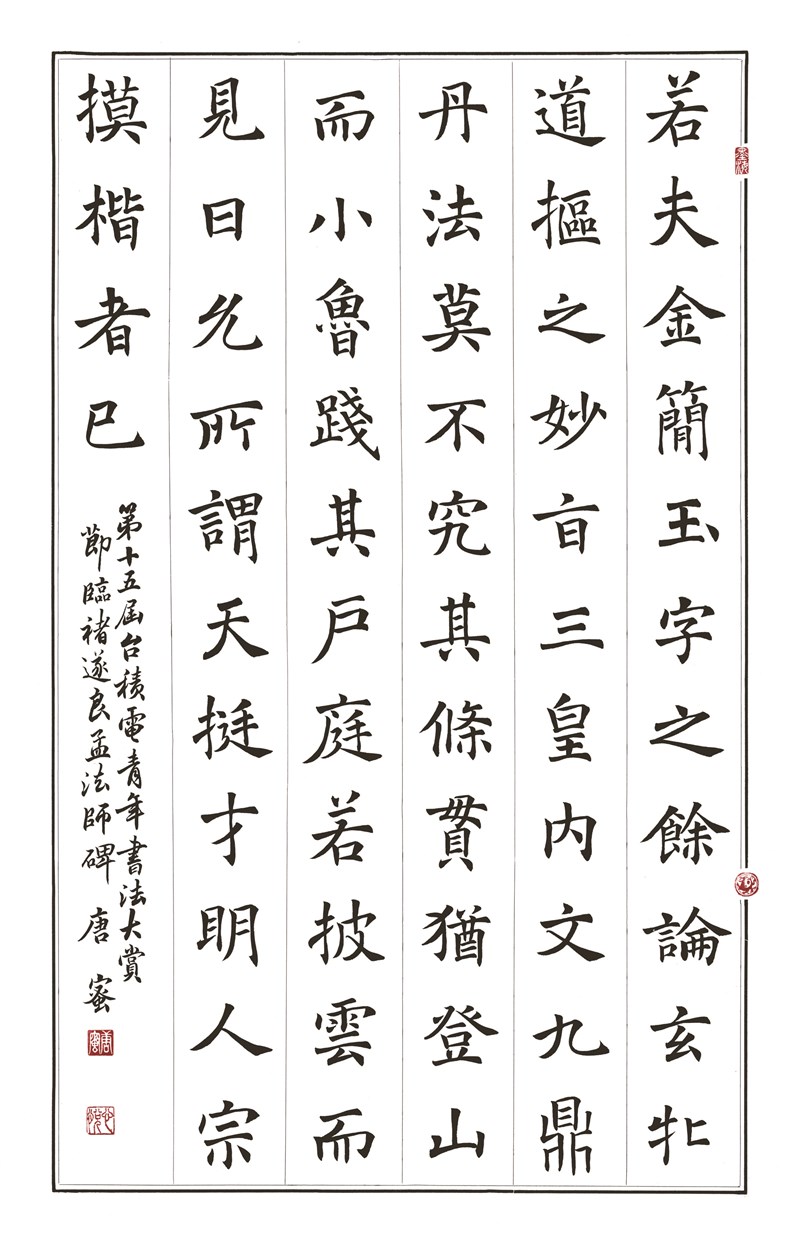 若夫金簡玉字之餘論玄牝
道摳之妙旨三皇内文九鼎
丹法莫不究其條貫猶登山
而小魯踐其戶庭若披雲而
見日允所謂天挺才明人宗
摸楷者已
第十五屆台積電青年書法大賞
節臨褚遂良孟法師碑 唐蜜
唐蜜